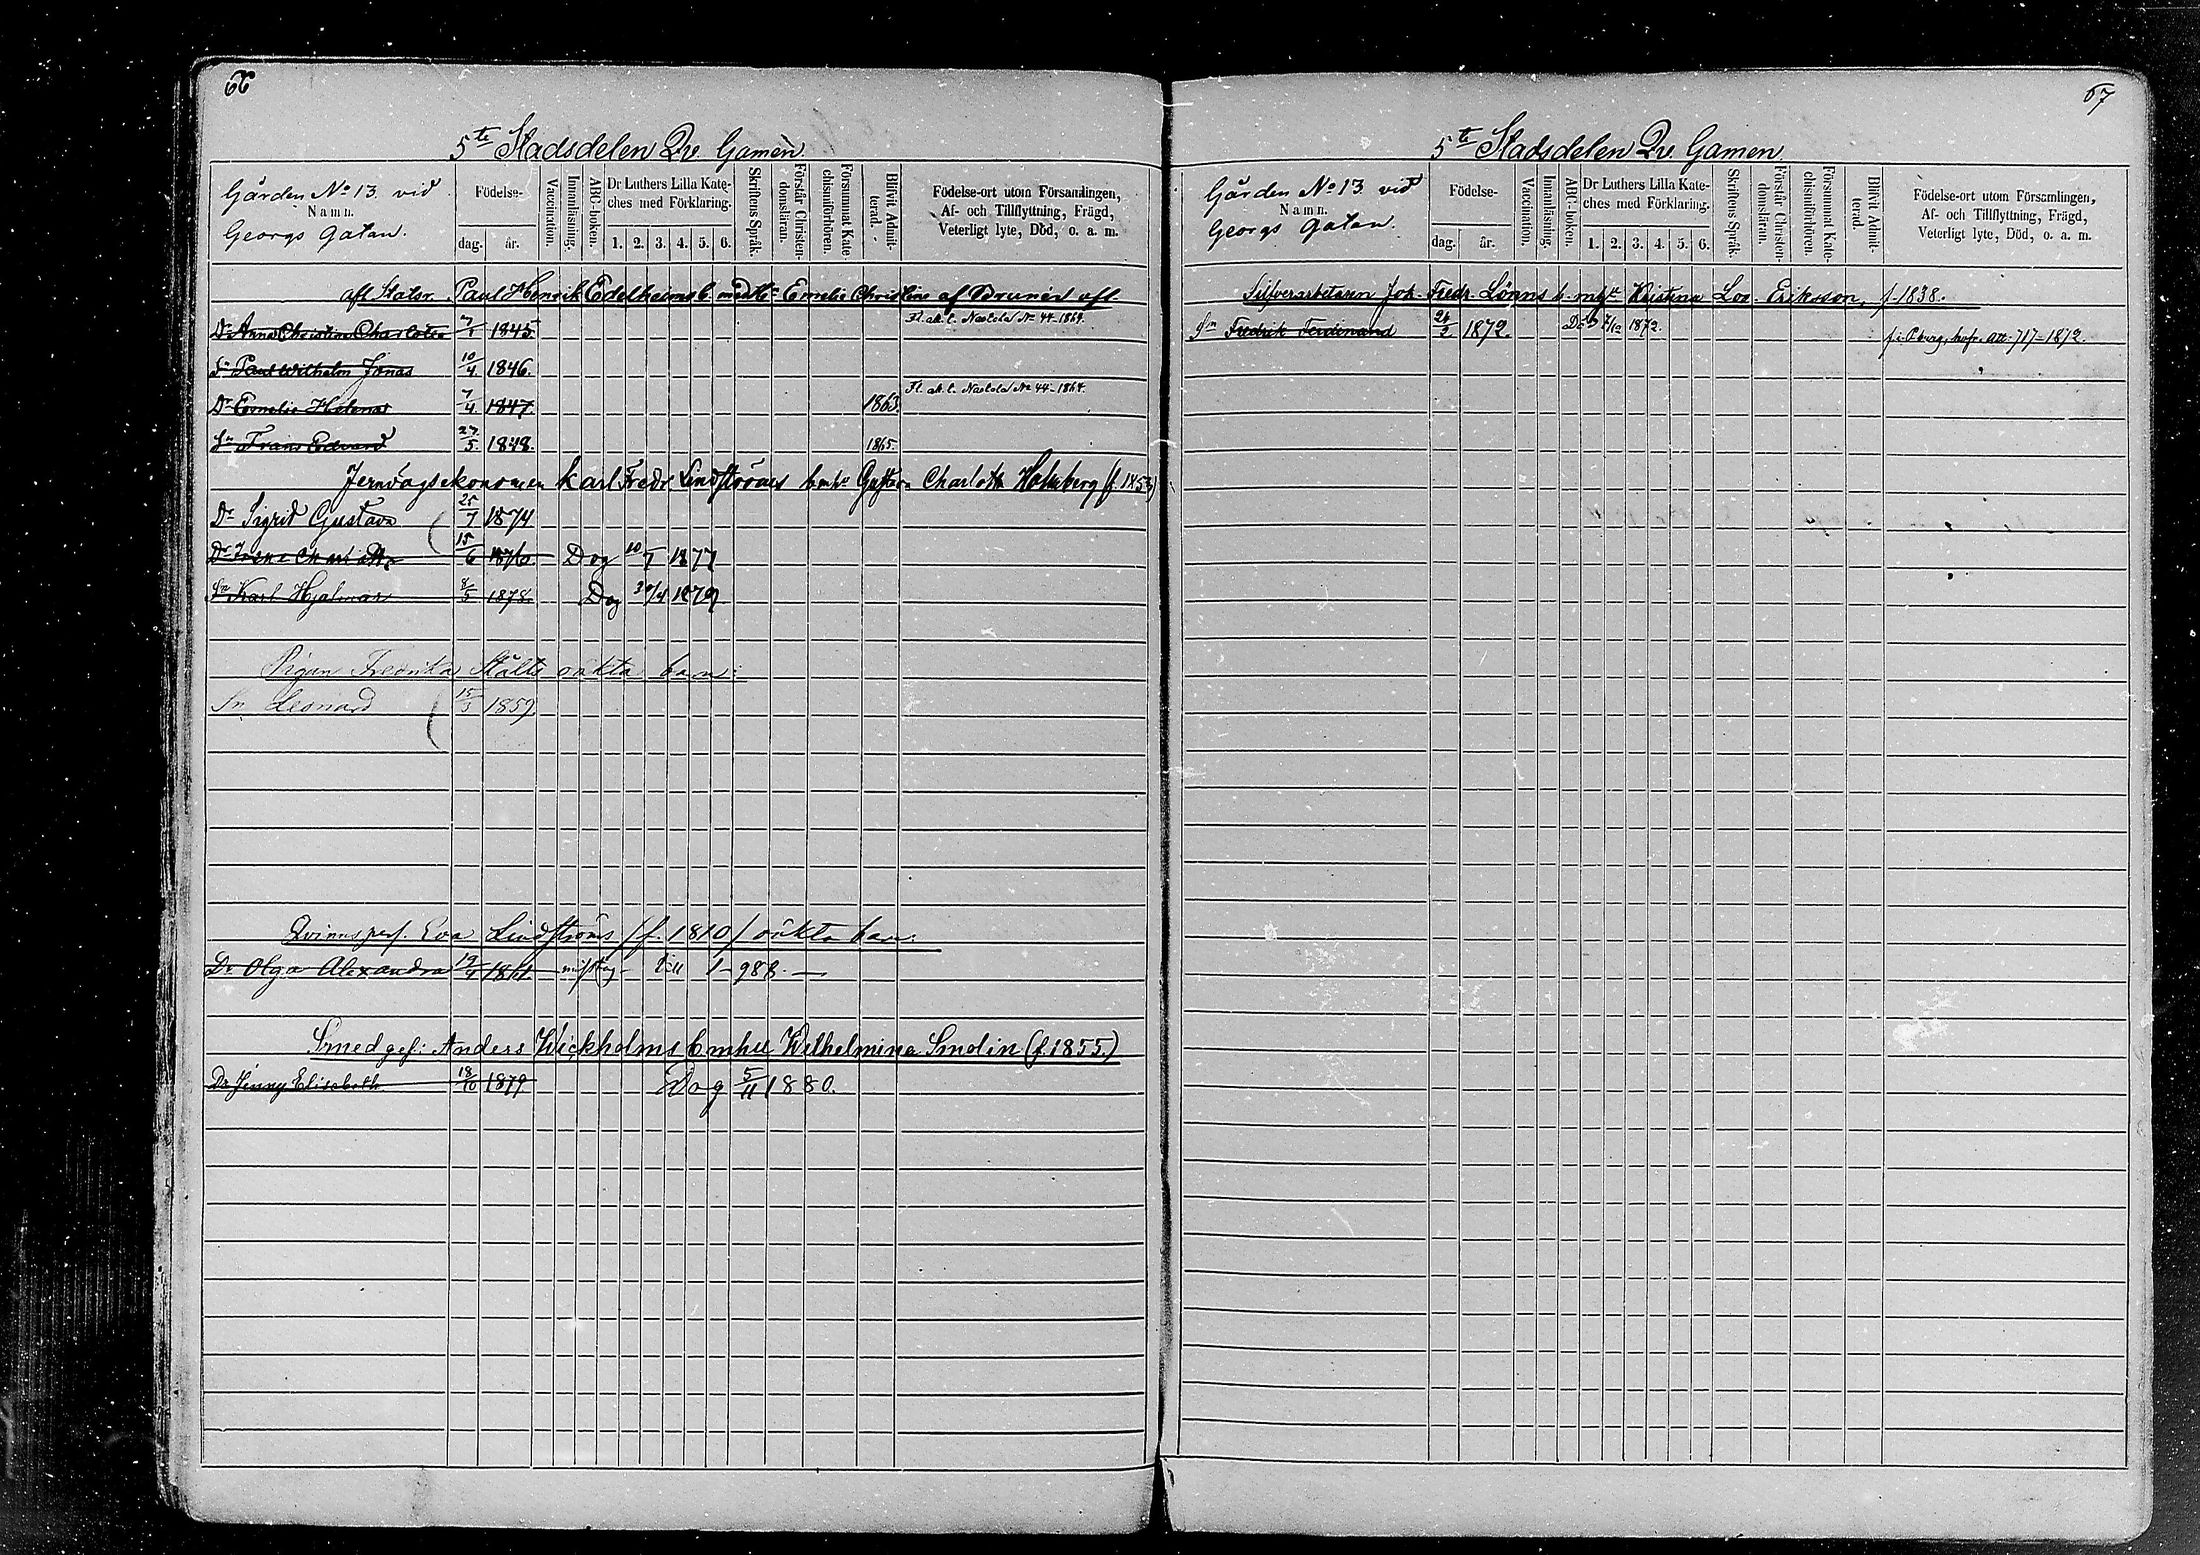 66
5te Stadsdelen Qv. Gamen
Gården No 13 vid
Namn.
Georgs gatan.
Födelse-
dag. år.
Vaccination.
Innanläsning.
ABC-boken.
Dr Luthers Lilla Kate-
ches med Förklaring.
1. 2. 3. 4. 5. 6.
Skriftens Språk.
Förstår Christen-
domsläran.
Försummat Kate
chismiförhören.
Blifvit Admit-
terad.
Födelse-ort utom Församlingen,
Af- och Tillflyttning, Frägd,
Veterligt lyte, Död, o. a. m.
afl. Statsr. Paul Henrik Edelheims b. med H: Emelie Christine af Brunér afl.
Dr Anna Christina Charlotta 7/1 1845. Fl. att. t. Nastola No 44-1864.
Sn Paul Wilhelm Jonas 10/4 1846.
Dr Emelie Helena 7/4 1847. 1863. Fl. att. t. Nastola No 44-1864.
Sn Frans Edvard 27/5 1848. 1865.
Jernvägsekonomen Karl Fredr. Lindströms b mhu Gustava Charlotta Holmberg (f. 1853)
Dr Sigrid Gustava 25/7 1874
Dr Charlotta 15/6 1876. Dog 10/7 1877
Sn Karl Hjalmar 8/5 1878. Dog 30/4 1879
Pigan Fredrika Ståls oäkta barn:
Sn Leonard 15/3 1859
Qvinnspers. Eva Lindströms /f. 1810/ oäkta barn.
Dr Olga Alexandra 19/4 1861
Smedges: Anders Wickholms b mhu Wilhelmina Smolin (f. 1855.)
Dr Jenny Elisabeth 18/10 1879 Dog 5/11 1880.
67
5te Stadsdelen Qv. Gamen
Gården No 13 vid
Namn.
Georgs Gatan.
Födelse-
dag. år.
Vaccination.
Innanläsning.
ABC-boken.
Dr Luthers Lilla Kate-
ches med Förklaring.
1. 2. 3. 4. 5. 6.
Skriftens Språk.
Förstår Christen-
domsläran.
Försummat Kate-
chismiförhören.
Blifvit Admit-
terad.
Födelse-ort utom Församlingen,
Af- och Tillflyttning, Frägd,
Veterligt lyte, Död, o. a. m.
Silfverarbetaren Joh. Fredr. Lönns b. mhu Kristina Lov. Eriksson, f. 1838.
Sn Fredrik Ferdinand 24/2 1872. Död 7/12 1872. att. 717-1872.